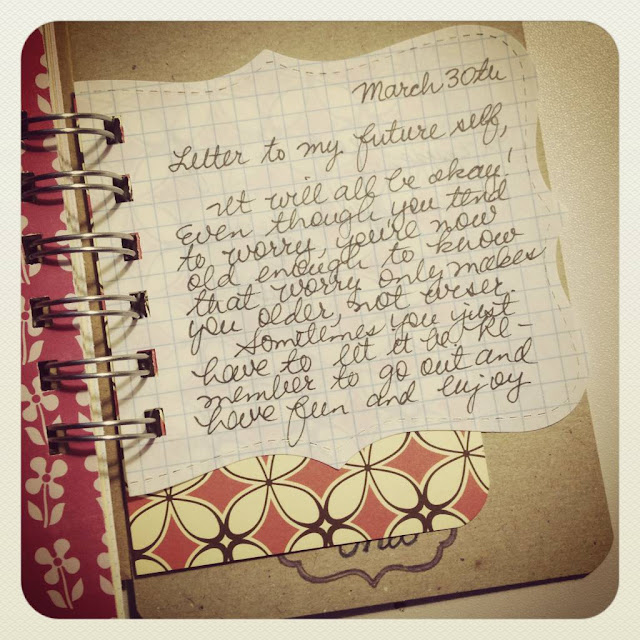 March 30th
Letter to my future self,
It will all be okay!
Even though you tend
to worry, you're now
old enough to know
that worry only makes
you older, not wiser.
Sometimes you just
have to let it be. Re-
member to go out and
have fun and enjoy